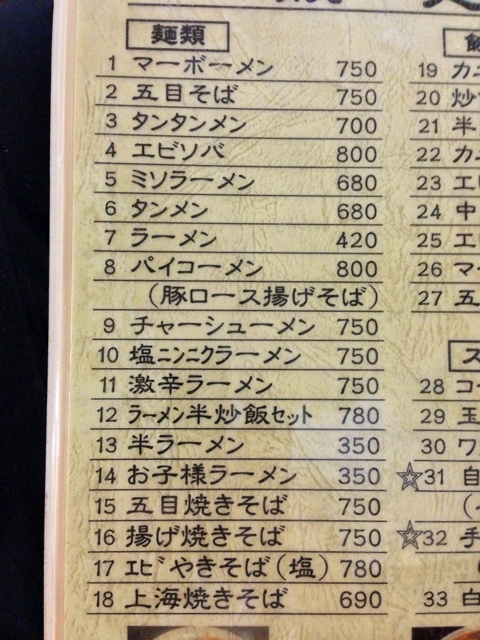 麺類
1 マーボーメン 750
2 五目そば 750
3 タンタンメン 700
4 エビソバ 800
5 ミソラーメン 680
6 タンメン 680
7 ラーメン 420
8 パイコーメン 800
(豚ロース揚げそば)
9 チャーシューメン 750
10 塩ニンニクラーメン 750
11 激辛ラーメン 750
12 ラーメン半炒飯セット 780
13 半ラーメン 350
14 お子様ラーメン 350
15 五目焼きそば 750
16 揚げ焼きそば 750
17 エビやきそば(塩) 780
18 上海焼きそば 690
19 カ
20 炒
21 半
22 カ
23 エ
24 中
25 エ
26 マ
27 五
ス
28 コ
29 玉
30 ワ
☆31 自
☆32 手
33 白